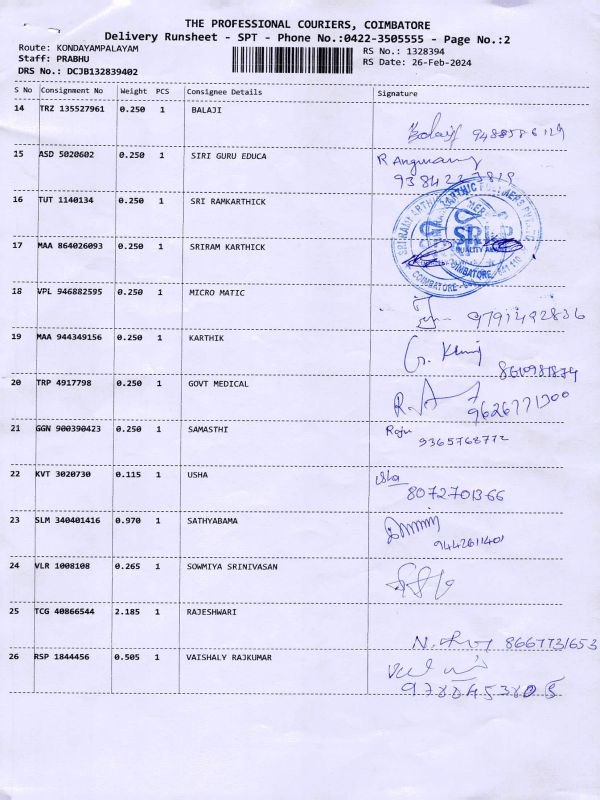 THE PROFESSIONAL COURIERS, COIMBATORE
Delivery Runsheet - SPT - Phone No.:0422-3505555 - Page No.:2
Route: KONDAYAMPALAYAM
RS No.: 1328394
Staff: PRABHU
RS Date: 26-Feb-2024
DRS No.: DCJB132839402
S No Consignment No Weight PCS Consignee Details Signature
14 TRZ 135527961 0.250 1 BALAJI
Balaji
15 ASD 5020602 0.250 1 SIRI GURU EDUCA
16 TUT 1140134 0.250 1 SRI RAMKARTHICK
17 MAA 864026093 0.250 1 SRIRAM KARTHICK
COIMBATORE
18 VPL 946882595 0.250 1 MICRO MATIC
9791492836
19 MAA 944349156 0.250 1 KARTHIK
20 TRP 4917798 0.250 1 GOVT MEDICAL
9626771300
21 GGN 900390423 0.250 1 SAMASTHI
Raju
9365768772
22 KVT 3020730 0.115 1 USHA
8072701366
23 SLM 340401416 0.970 1 SATHYABAMA
9442611401
24 VLR 1008108 0.265 1 SOWMIYA SRINIVASAN
25 TCG 40866544 2.185 1 RAJESHWARI
26 RSP 1844456 0.505 1 VAISHALY RAJKUMAR